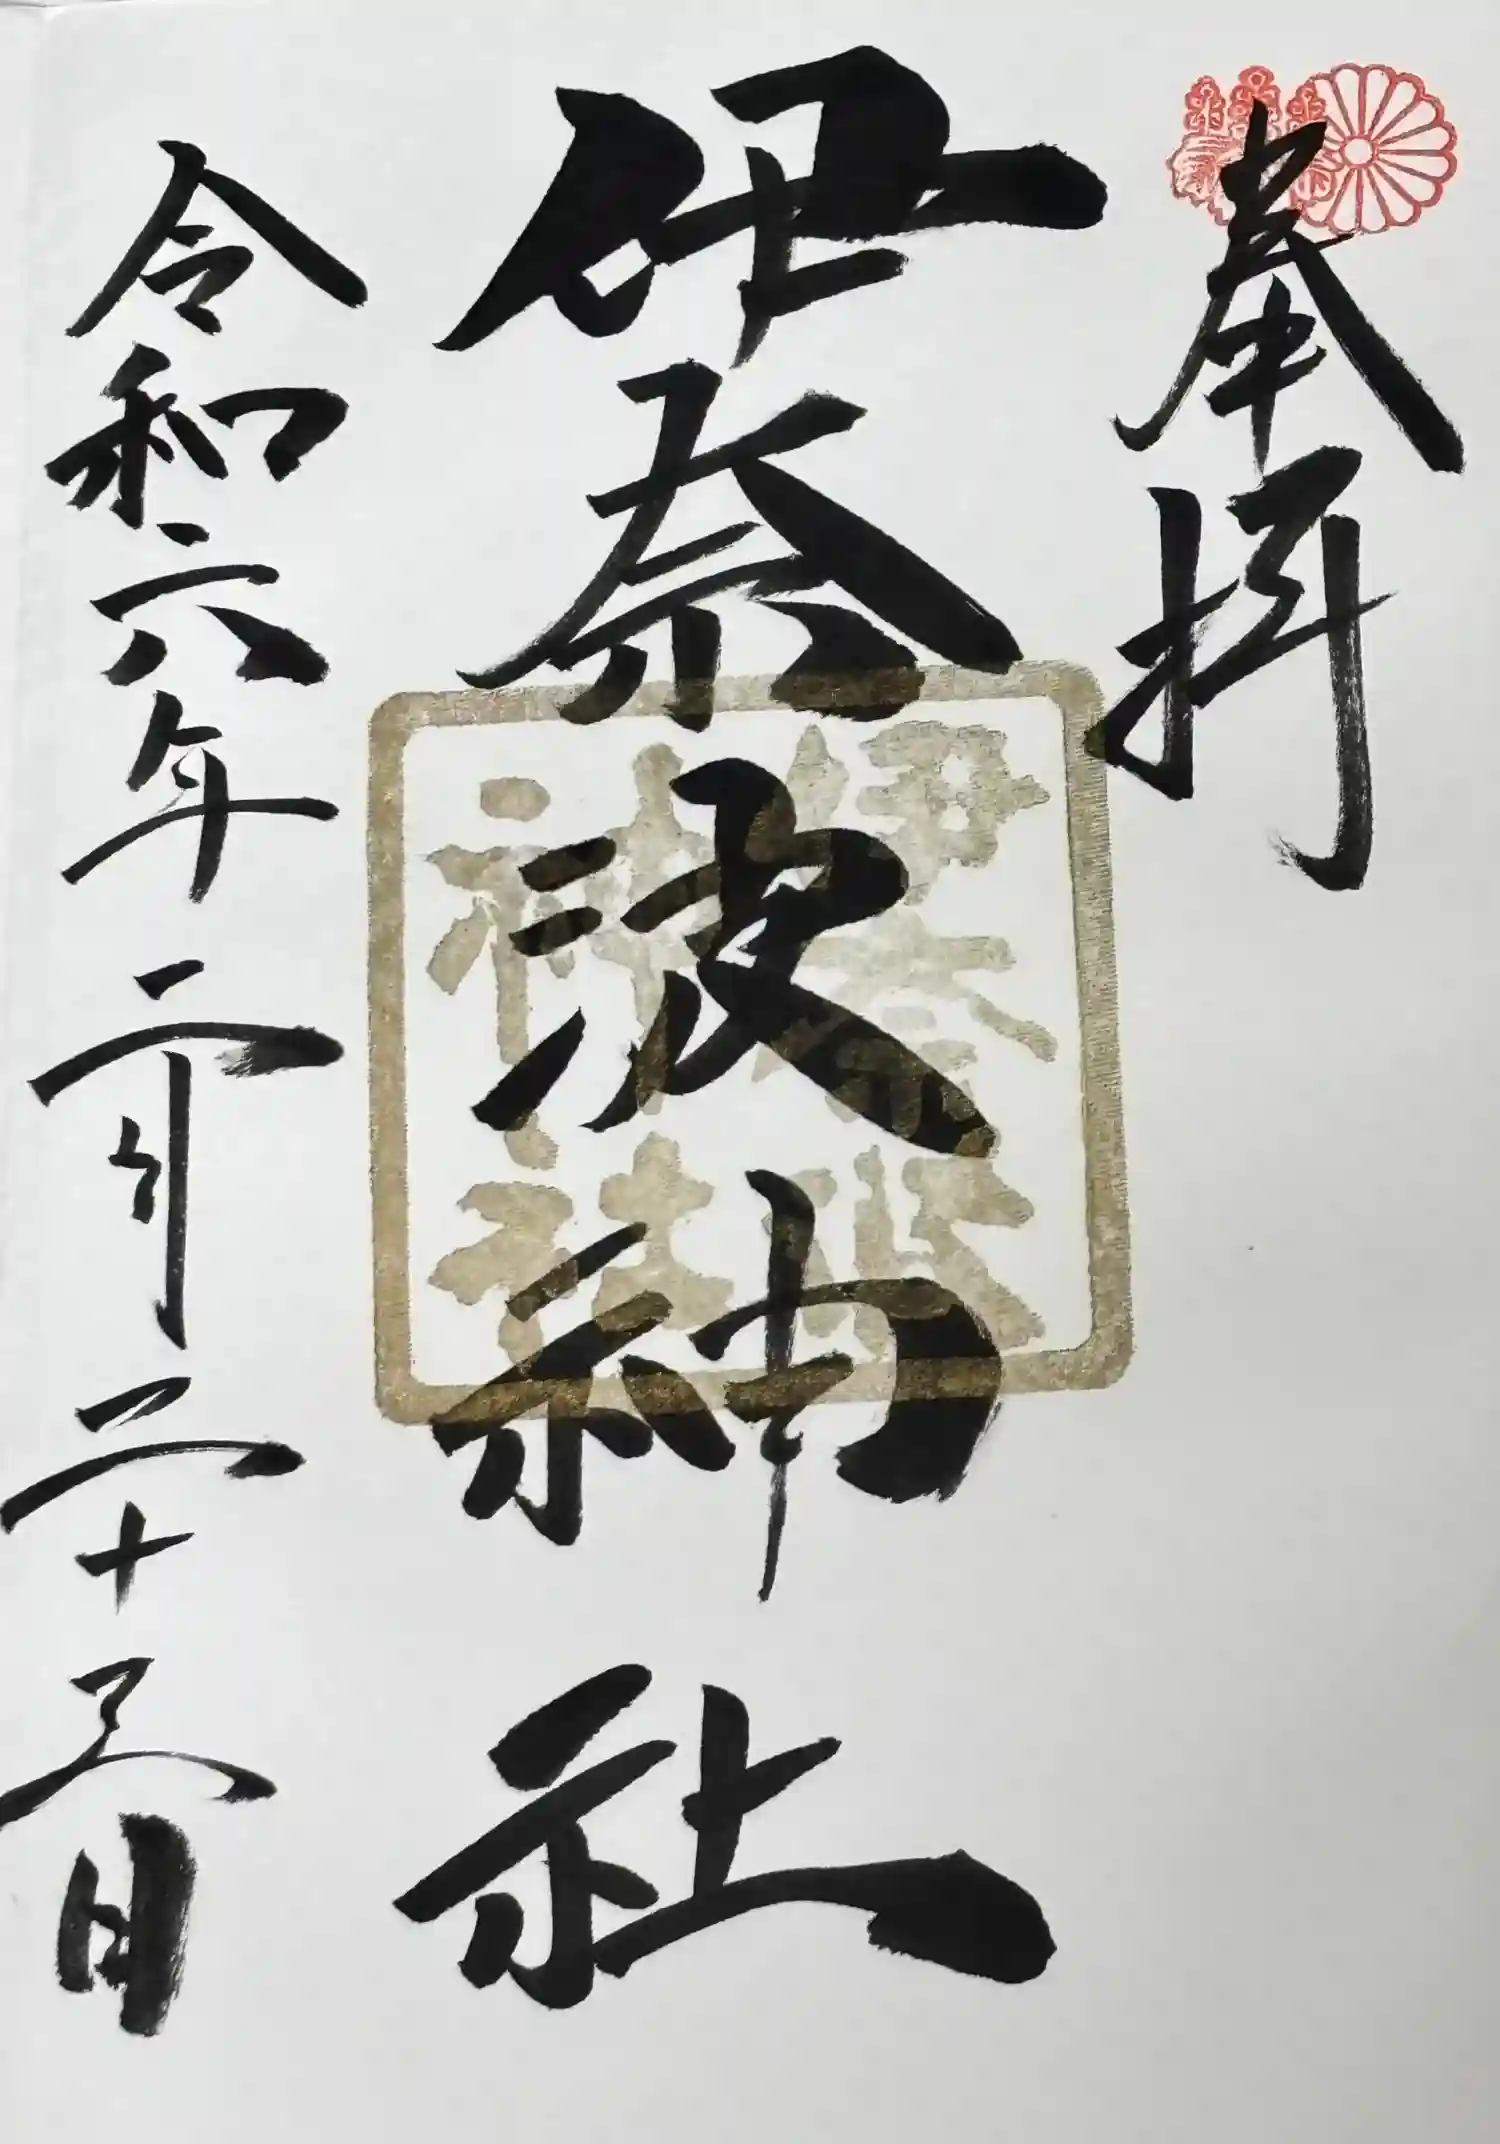 奉拝
伊奈波神社
伊奈波
神社
令和六年二月二十三日